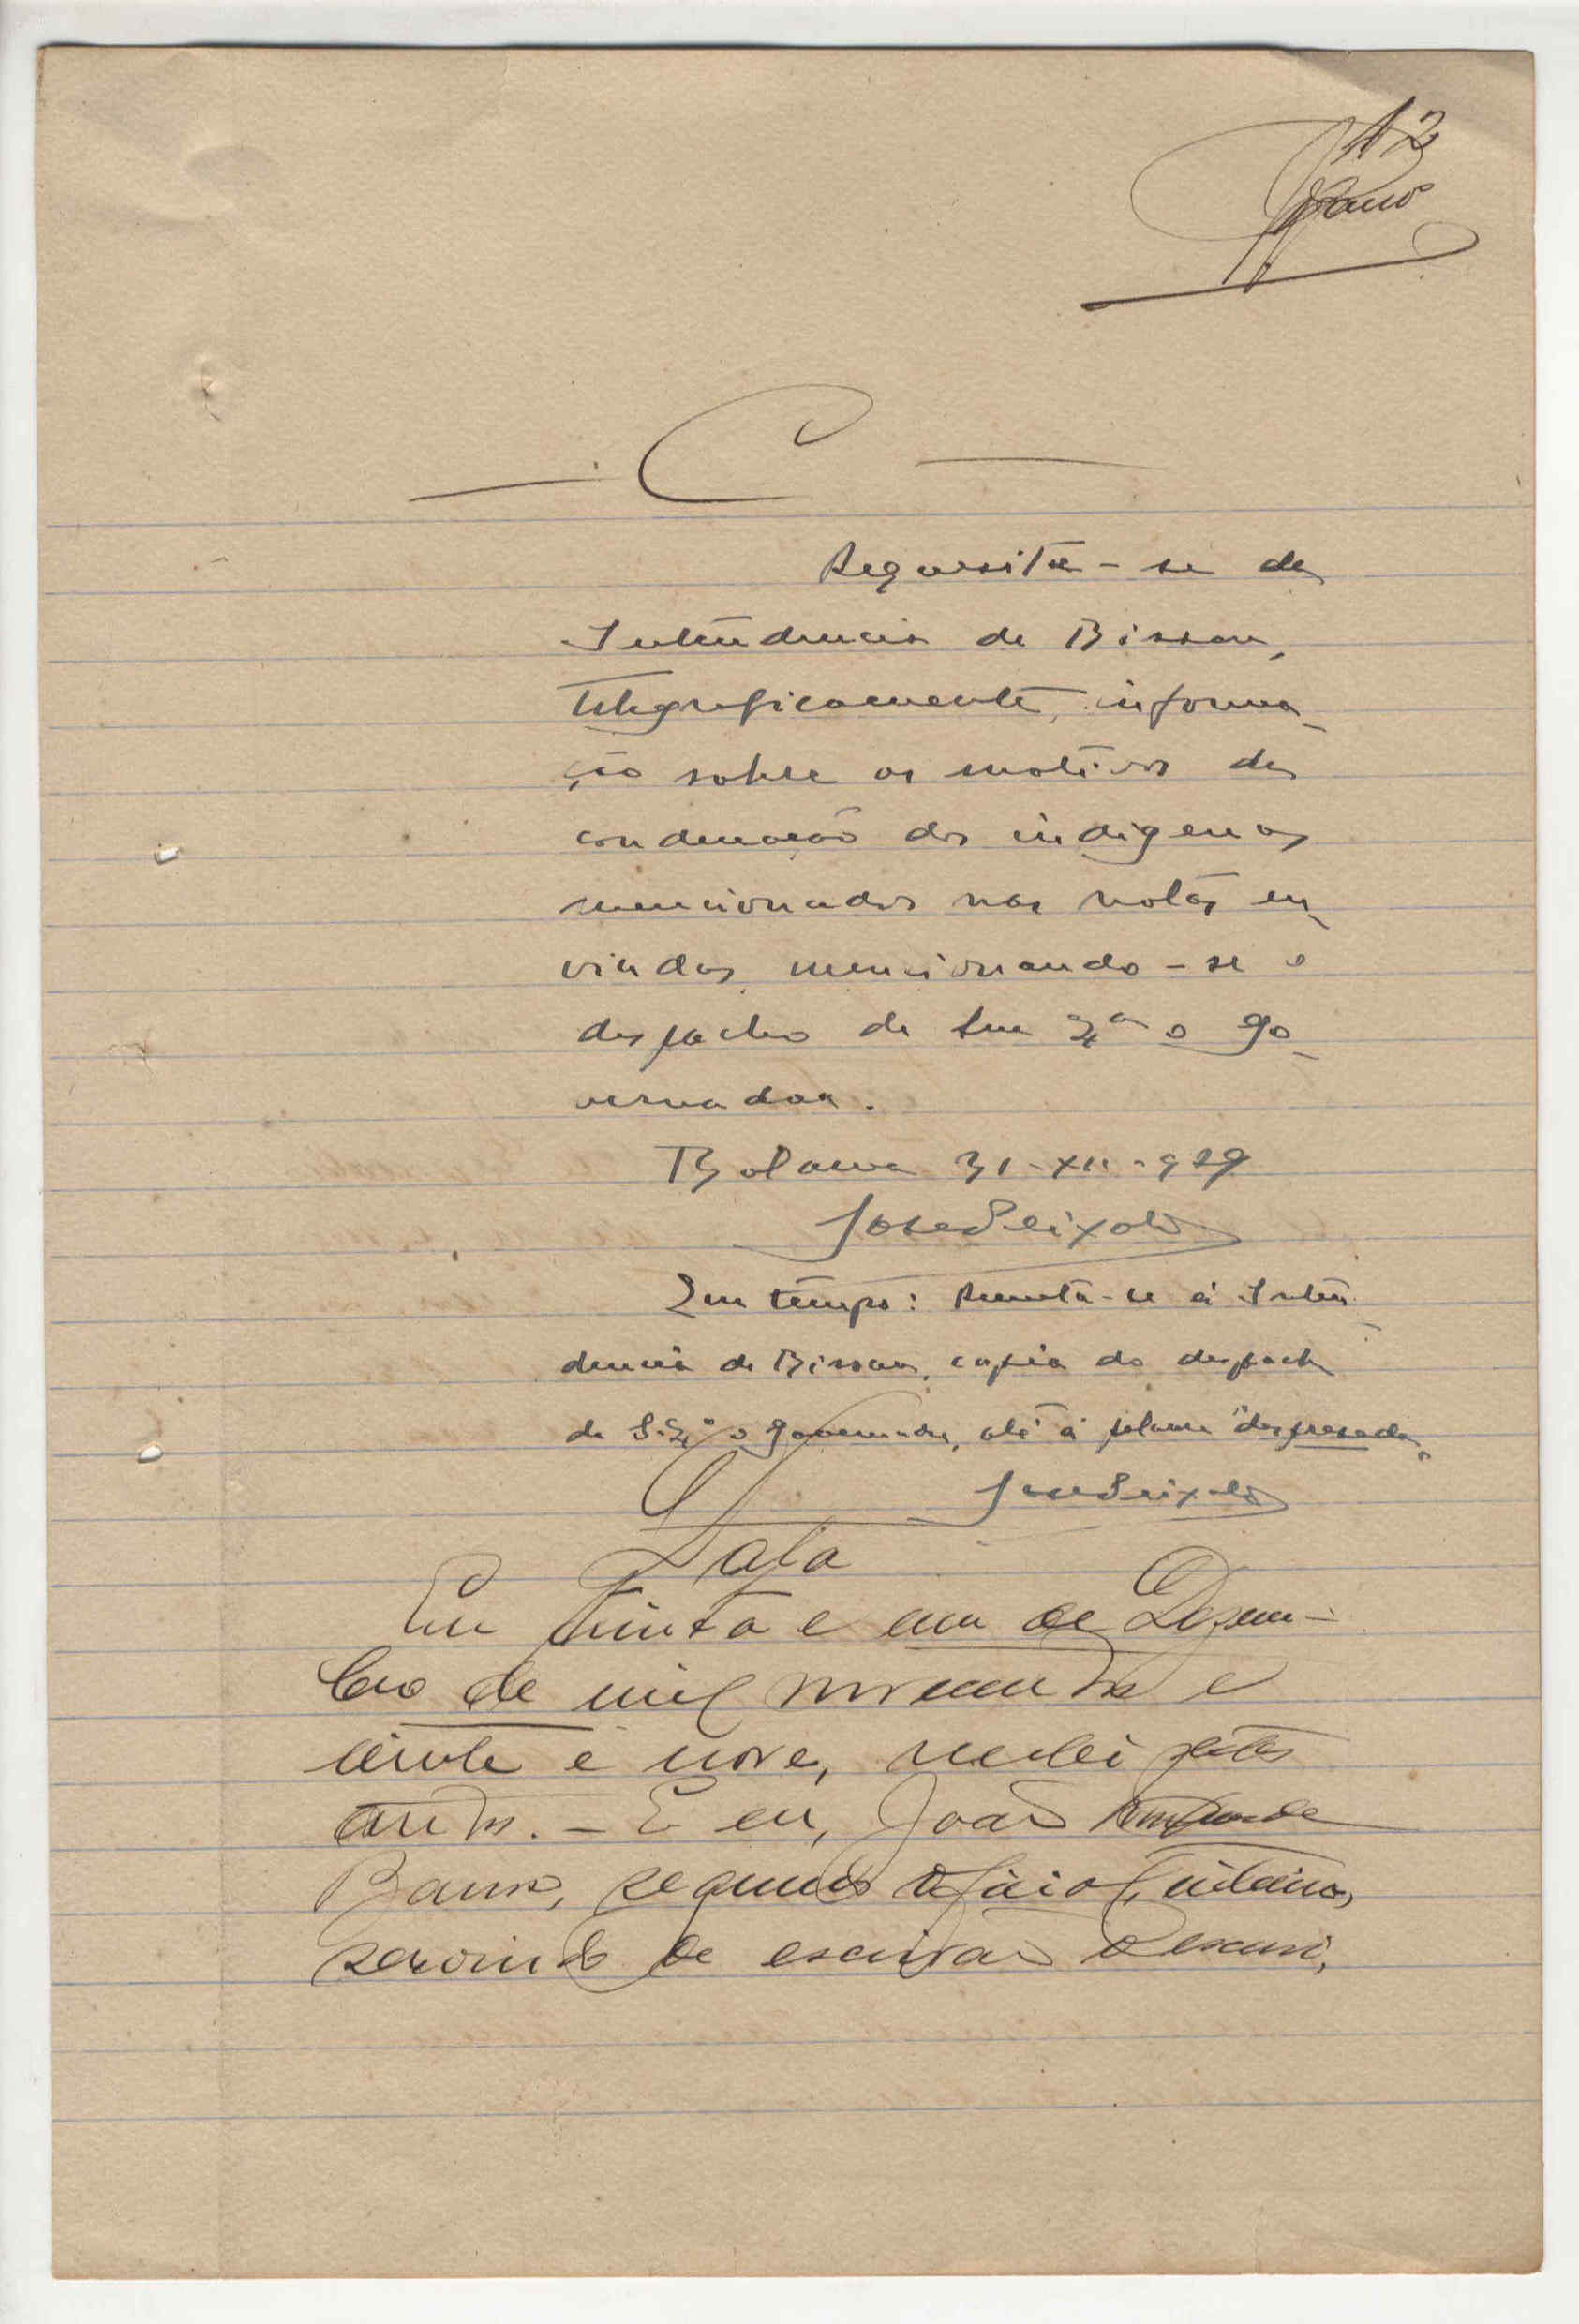 12
Barros
C
Requisite-se da
Intendencia de Bissau,
telegraficamente, informa-
ção sobre os motivos da
condenação dos indigenas
mencionados nas notas en-
viadas, mencionando-se o
despacho de Sua Exª o go-
vernador.
Bolama 31-XII-929
José Peixoto
Em tempo: Remeta-se á Inten-
dencia de Bissau, copia do despacho
de S. Exª o Governador, até á palavra "desprezada".
José Peixoto
Data
Em trinta e um de Dezem-
bro de mil novecentos e
vinte e nove, recebi estes
autos. - E eu, João de
Barros, segundo oficial, interino,
servindo de escrivão o escrevi,